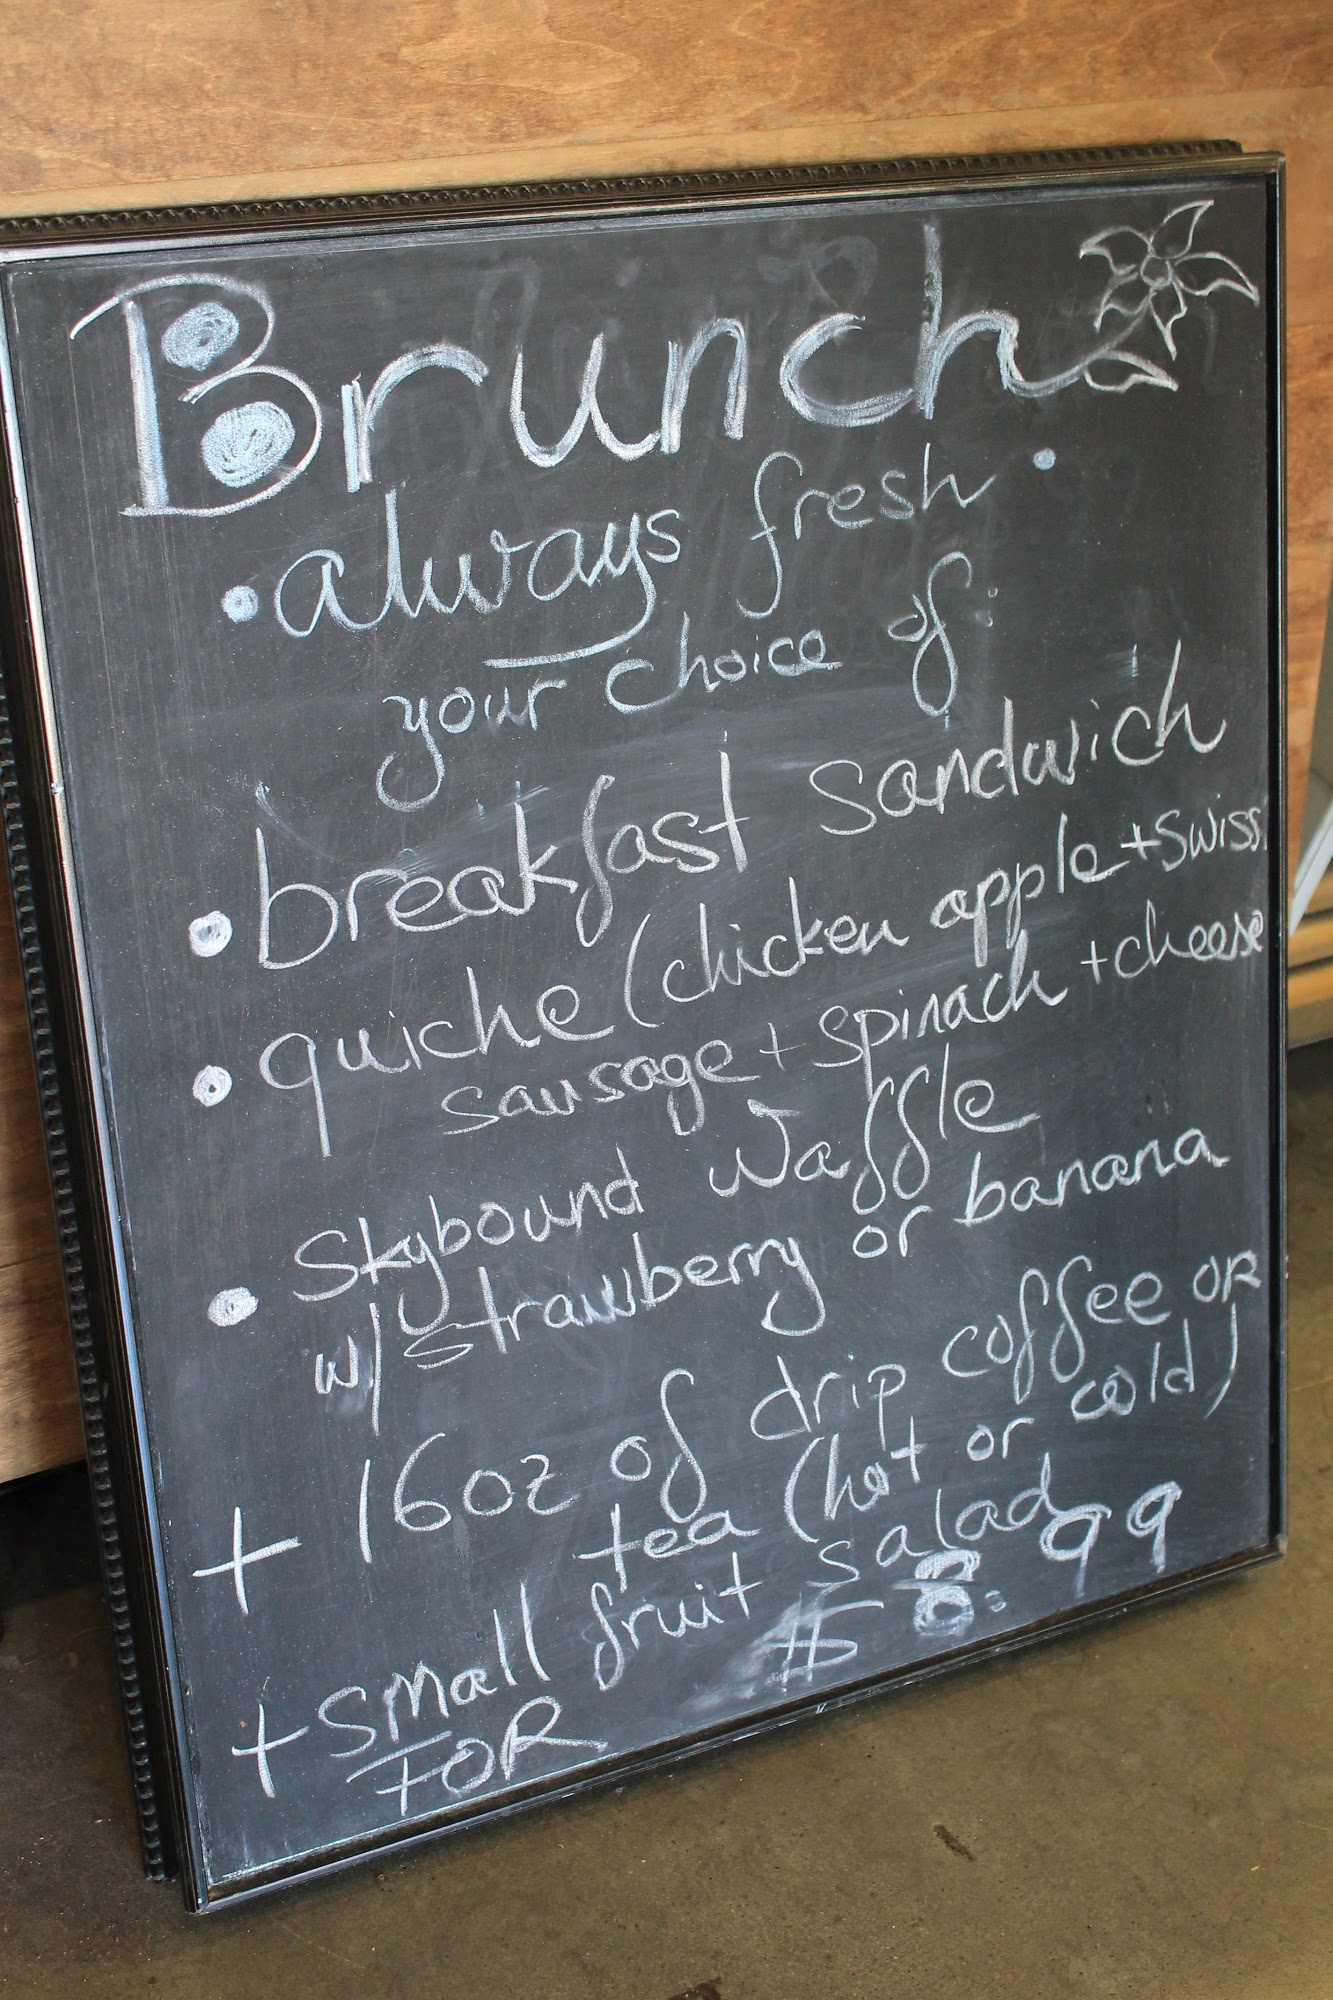 Brunch
• always fresh •
your choice of:
• breakfast sandwich
• quiche (chicken apple + swiss
sausage + spinach + cheese
• Skybound Waffle
w/ strawberry or banana
+ 16oz of drip coffee OR
tea (hot or cold)
+ small fruit salad
FOR $8.99